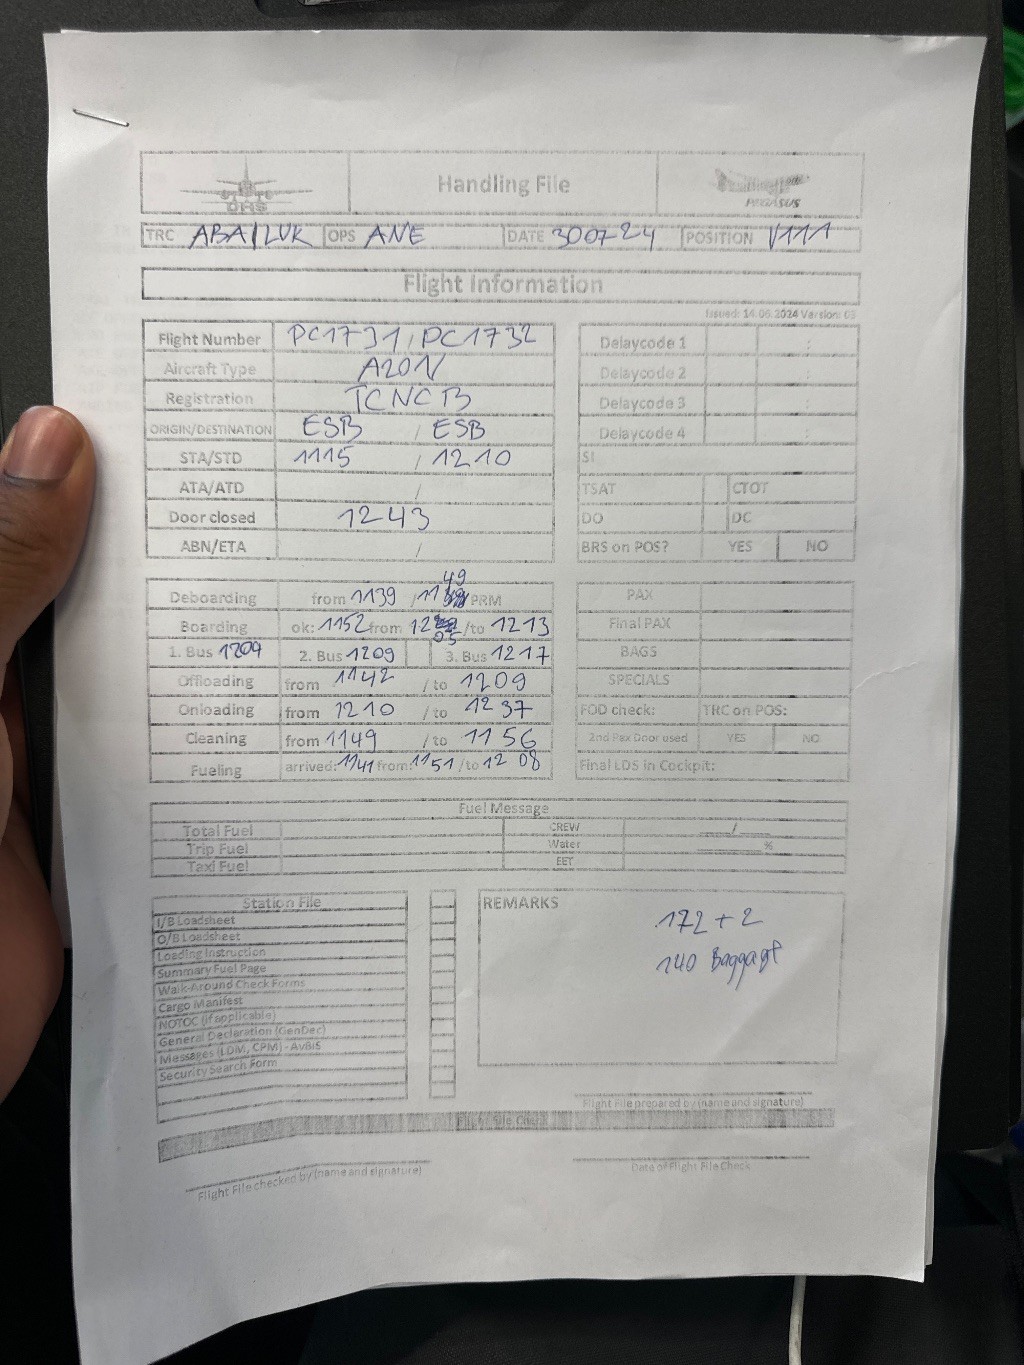 DHS
Handling File
PEGASUS
TRC ABA/LUK OPS ANE DATE 300724 POSITION V111
Flight Information
Issued: 14.06.2024 Version: 03
Flight Number PC1731 / PC1732
Aircraft Type A20N
Registration TCNCB
ORIGIN/DESTINATION ESB / ESB
STA/STD 1115 / 1210
ATA/ATD /
Door closed 1243
ABN/ETA /
Delaycode 1 :
Delaycode 2 :
Delaycode 3 :
Delaycode 4 :
SI
TSAT CTOT
DO DC
BRS on POS? YES NO
Deboarding from 1139 / 1149 PRM
Boarding ok: 1152 from 1205 /to 1213
1. Bus 1204 2. Bus 1209 3. Bus 1217
Offloading from 1142 /to 1209
Onloading from 1210 /to 1237
Cleaning from 1149 /to 1156
Fueling arrived: 1141 from: 1151 /to 1208
PAX
Final PAX
BAGS
SPECIALS
FOD check: TRC on POS:
2nd Pax Door used YES NO
Final LDS in Cockpit:
Fuel Message
Total Fuel CREW /
Trip Fuel Water %
Taxi Fuel EET
Station File
I/B Loadsheet
O/B Loadsheet
Loading Instruction
Summary Fuel Page
Walk-Around Check Forms
Cargo Manifest
NOTOC (if applicable)
General Declaration (GenDec)
Messages (LDM, CPM) - AvBIS
Security Search Form
REMARKS
172 + 2
140 Baggage
Flight File prepared by (name and signature)
Flight File Check
Flight File checked by (name and signature)
Date of Flight File Check